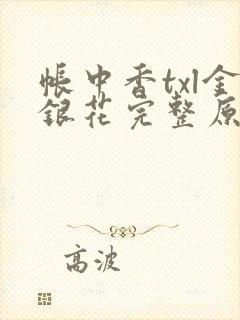 帐中香txl金
银花完整原
高波